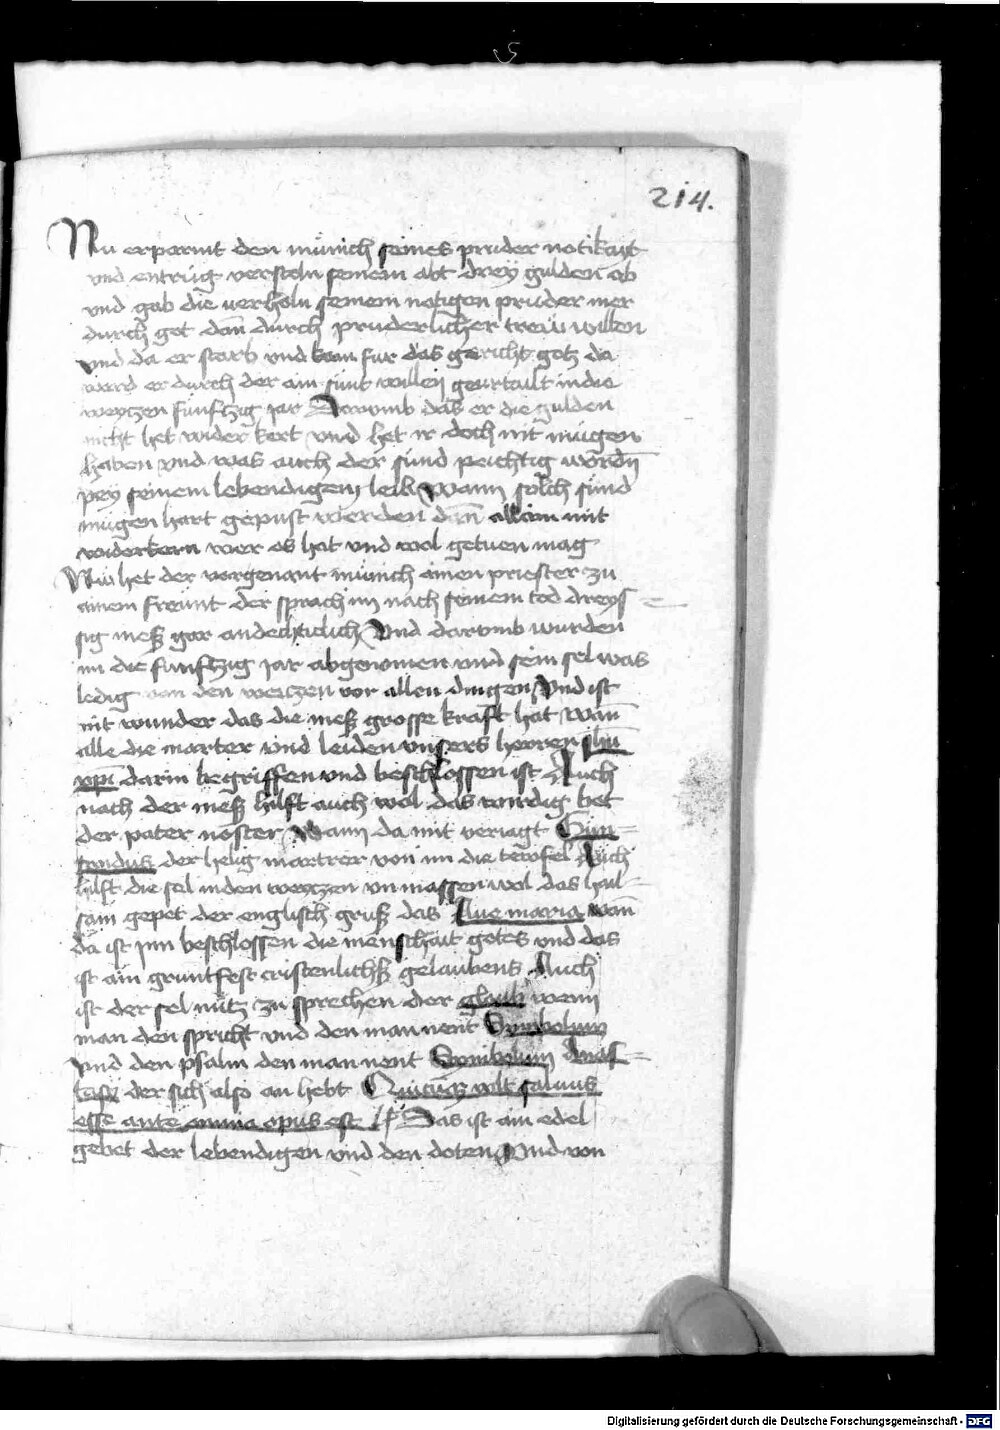 214.
Nu erparmt den münich seines pruder notikayt
vnd entrüg verstoln seinem abt drey gulden ab
vnd gab die verholn seinem notigen pruder mer
durch got dan̄ durch pruderlicher treẅ willen
vnd da er starb vnd kam fur das gericht gotz da
ward er durch der ain sünt willen geurtailt in die
weytzen fünftzig jar Darvmb das er die gulden
nicht het wider kert vnd het ir doch nit mügen
haben vnd was auch der sünd peichtig worden̄
pey seinem lebendigem leib Wann solch sünd
mügen hart gepust werden dan̄ allain mit
widerkern wer es hat vnd wol getuen mag
Nu het der vorgenant münich ainen priester zu
ainem freünt der sprach im nach seinem tod dreys=
sig meß gar andechticlich Vnd darvmb wurden
im die funftzig jar abgenomen vnd sein sel was
ledig von den weitzen vor allen dingen Vnd ist
nit wunder das die meß grosse kraft hat Wan̄
alle die marter vnd leiden vnsers herren jhū
xpī darin begriffen vnd beschlossen ist Auch
nach der meß hilft auch wol das wirdig bet
der pater noster Wann da mit veriagt
der helig martrer von im die tewfel Auch
hilft die sel in den weytzen vn massen wol das hail=
sam gepet der englisch gruß das Aue maria wan̄
da ist jnn beschlossen die menschait gotes vnd das
ist ain gruntfest cristenlichs gelaubens Auch
ist der sel nütz zu sprechen der glaub wenn
man den spricht vnd den man nent Symbolum
vnd den psalm den man nent Symbolum Anas=
tasij der sich also an hebt Quicūqȝ vult saluus
esse ante omnia opus est Das ist ain edel
gebet der lebendigen vnd den doten Vnd von
Digitalisierung gefördert durch die Deutsche Forschungsgemeinschaft - DFG